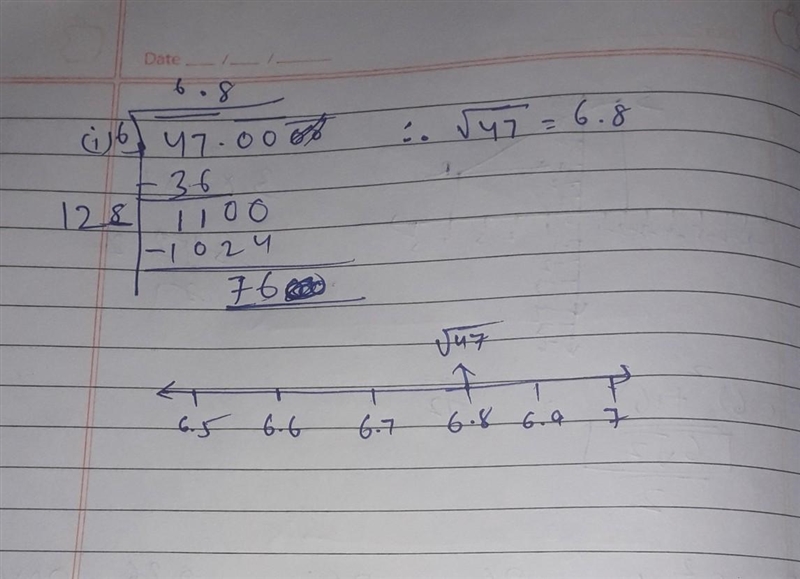 Date __/__/____
6.8
(i) 6 √47.00 ∴ √47 = 6.8
- 36
128 1100
- 1024
76
√47
6.5 6.6 6.7 6.8 6.9 7